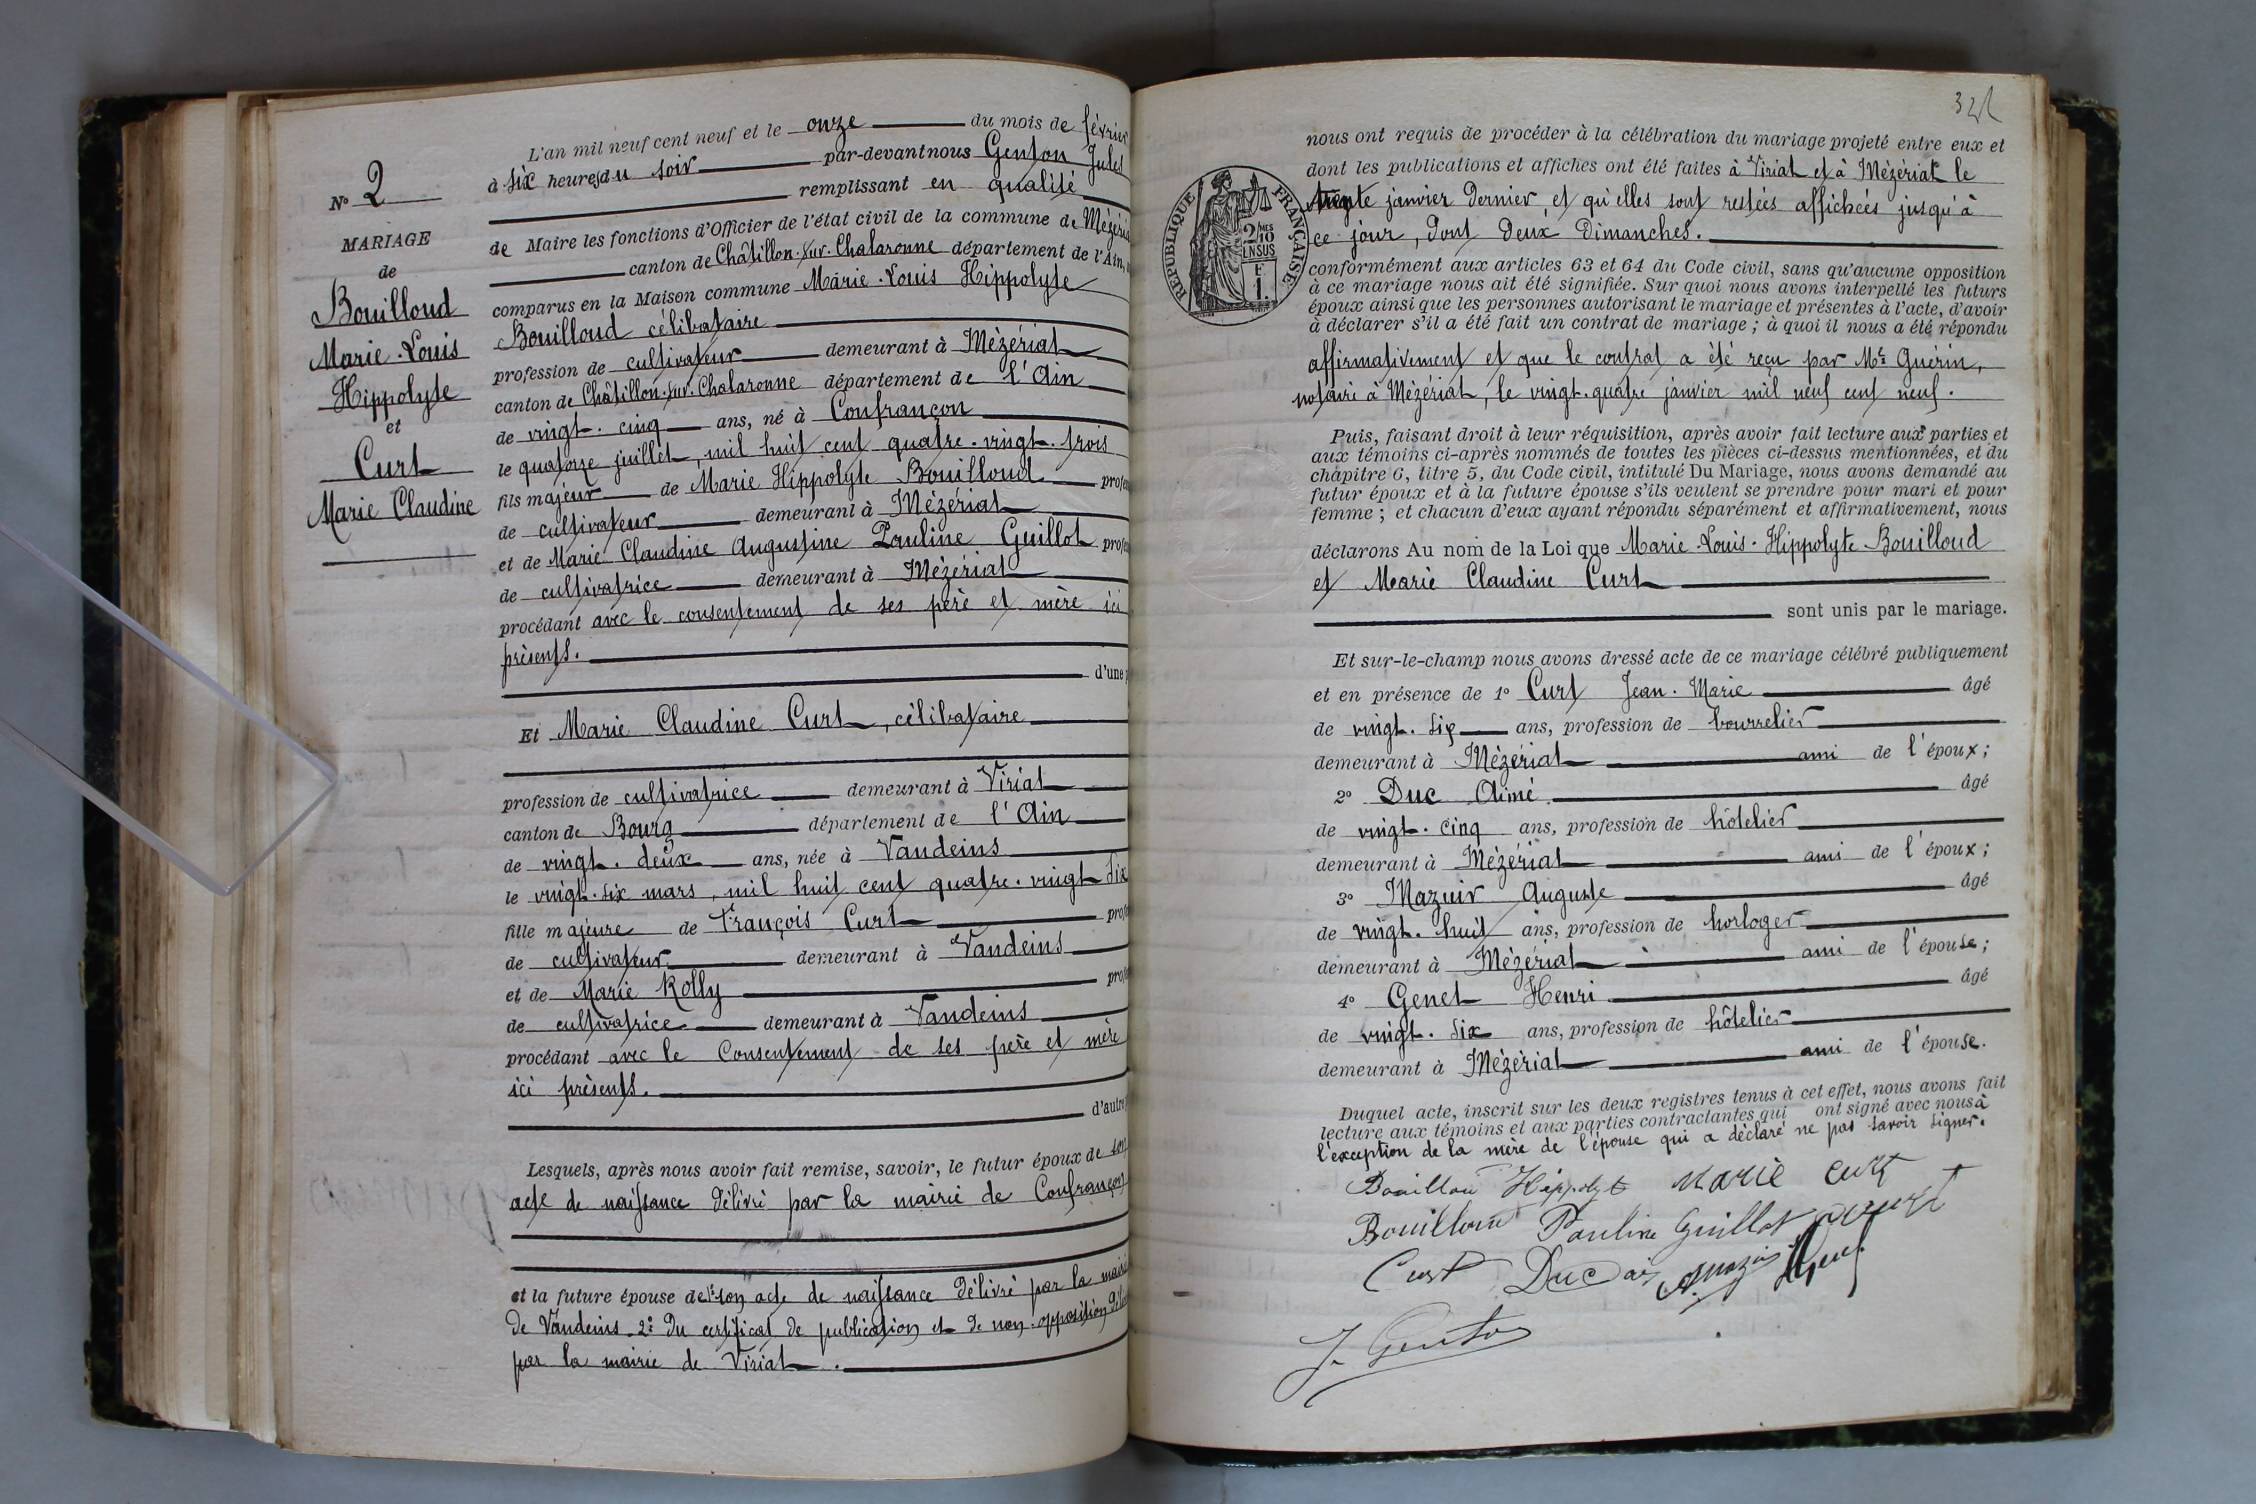 N° 2
MARIAGE
de
Bouilloud
Marie-Louis
Hippolyte
et
Curt
Marie Claudine
L'an mil neuf cent neuf et le onze du mois de février
à six heures du soir par-devant nous Genton Jules
remplissant en qualité
de Maire les fonctions d'Officier de l'état civil de la commune de Mézéria
canton de Châtillon-sur-Chalaronne département de l'Ain,
comparus en la Maison commune Marie-Louis Hippolyte
Bouilloud célibataire
profession de cultivateur demeurant à Mézériat
canton de Châtillon-sur-Chalaronne département de l'Ain
de vingt-cinq ans, né à Confrançon
le quatorze juillet, mil huit cent quatre-vingt-trois
fils majeur de Marie Hippolyte Bouilloud profe
de cultivateur demeurant à Mézériat
et de Marie Claudine Augustine Pauline Guillot profe
de cultivatrice demeurant à Mézériat
procédant avec le consentement de ses père et mère ici
présents.
d'une
Et Marie Claudine Curt, célibataire
profession de cultivatrice demeurant à Viriat
canton de Bourg département de l'Ain
de vingt-deux ans, née à Vandeins
le vingt-six mars, mil huit cent quatre-vingt six
fille majeure de François Curt profe
de cultivateur demeurant à Vandeins
et de Marie Rolly profe
de cultivatrice demeurant à Vandeins
procédant avec le consentement de ses père et mère
ici présents.
d'autre
Lesquels, après nous avoir fait remise, savoir, le futur époux de son
acte de naissance délivré par la mairie de Confrançon
et la future épouse de 1° son acte de naissance délivré par la mairie
de Vandeins 2° du certificat de publication et de non-opposition
par la mairie de Viriat.
RÉPUBLIQUE FRANÇAISE
2/10 EN SUS
1 F.
nous ont requis de procéder à la célébration du mariage projeté entre eux et
dont les publications et affiches ont été faites à Viriat et à Mézériat le
trente janvier dernier, et qu'elles sont restées affichées jusqu'à
ce jour, dont deux dimanches.
conformément aux articles 63 et 64 du Code civil, sans qu'aucune opposition
à ce mariage nous ait été signifiée. Sur quoi nous avons interpellé les futurs
époux ainsi que les personnes autorisant le mariage et présentes à l'acte, d'avoir
à déclarer s'il a été fait un contrat de mariage ; à quoi il nous a été répondu
affirmativement et que le contrat a été reçu par Me Guérin,
notaire à Mézériat, le vingt-quatre janvier mil neuf cent neuf.
Puis, faisant droit à leur réquisition, après avoir fait lecture aux parties et
aux témoins ci-après nommés de toutes les pièces ci-dessus mentionnées, et du
chapitre 6, titre 5, du Code civil, intitulé Du Mariage, nous avons demandé au
futur époux et à la future épouse s'ils veulent se prendre pour mari et pour
femme ; et chacun d'eux ayant répondu séparément et affirmativement, nous
déclarons Au nom de la Loi que Marie-Louis-Hippolyte Bouilloud
et Marie Claudine Curt
sont unis par le mariage.
Et sur-le-champ nous avons dressé acte de ce mariage célébré publiquement
et en présence de 1° Curt Jean-Marie âgé
de vingt-six ans, profession de bourrelier
demeurant à Mézériat ami de l'époux ;
2° Duc Aimé âgé
de vingt-cinq ans, profession de hôtelier
demeurant à Mézériat ami de l'époux ;
3° Mazuir Auguste âgé
de vingt-huit ans, profession de horloger
demeurant à Mézériat ami de l'épouse ;
4° Genet Henri âgé
de vingt-six ans, profession de hôtelier
demeurant à Mézériat ami de l'épouse.
Duquel acte, inscrit sur les deux registres tenus à cet effet, nous avons fait
lecture aux témoins et aux parties contractantes qui ont signé avec nous à
l'exception de la mère de l'épouse qui a déclaré ne pas savoir signer.
Bouillou Hippolyte Marie Curt
Bouilloud Pauline Guillot
Curt Duc
J. Genton